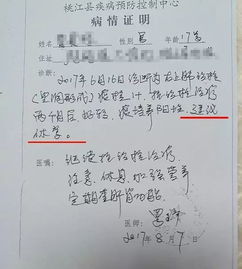 桃江县疾病预防控制中心
病情证明
姓名 性别 男 年龄 17岁
诊断 2017年6月16日诊断为右上肺结核
(空洞形成) 痰检1+ 抗结核治疗
两个月好转,痰培养阳性,建议
休学。
医嘱: 继续抗结核治疗
注意休息加强营养
定期查肝肾功能
2017年8月7日